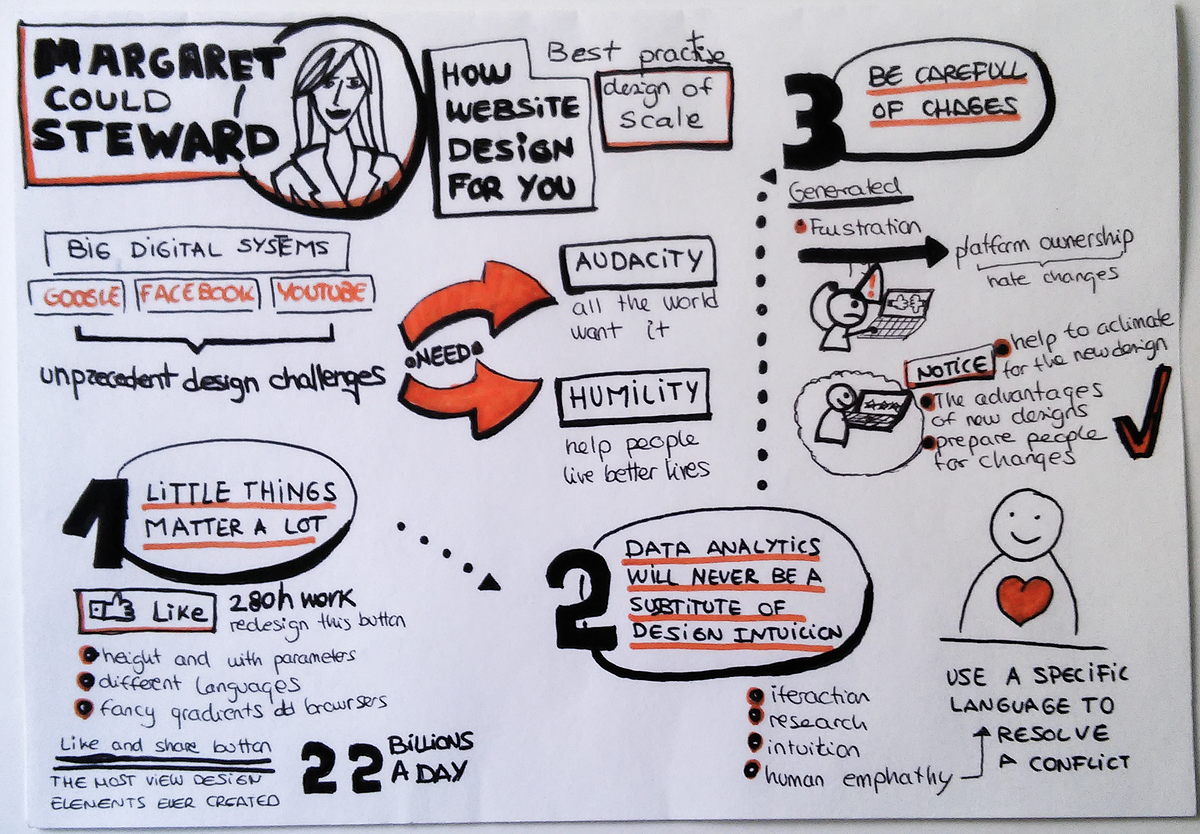 MARGARET
COULD
STEWARD
HOW
WEBSITE
DESIGN
FOR YOU
Best practise
design of
scale
BIG DIGITAL SYSTEMS
GOOGLE FACEBOOK YOUTUBE
unprecedent design challenges
NEED
AUDACITY
all the world
want it
HUMILITY
help people
live better lives
1
LITTLE THINGS
MATTER A LOT
Like
280h work
redesign this button
height and with parameters
different languages
fancy gradients browsers
Like and share button
THE MOST VIEW DESIGN
ELEMENTS EVER CREATED
22 BILLIONS
A DAY
2
DATA ANALYTICS
WILL NEVER BE A
SUBTITUTE OF
DESIGN INTUICION
iteraction
research
intuition
human emphathy
USE A SPECIFIC
LANGUAGE TO
RESOLVE
A CONFLICT
3
BE CAREFULL
OF CHAGES
Generated
Fustration
platform ownership
hate changes
!
NOTICE
help to aclimate
for the new design
The advantages
of new designs
prepare people
for changes